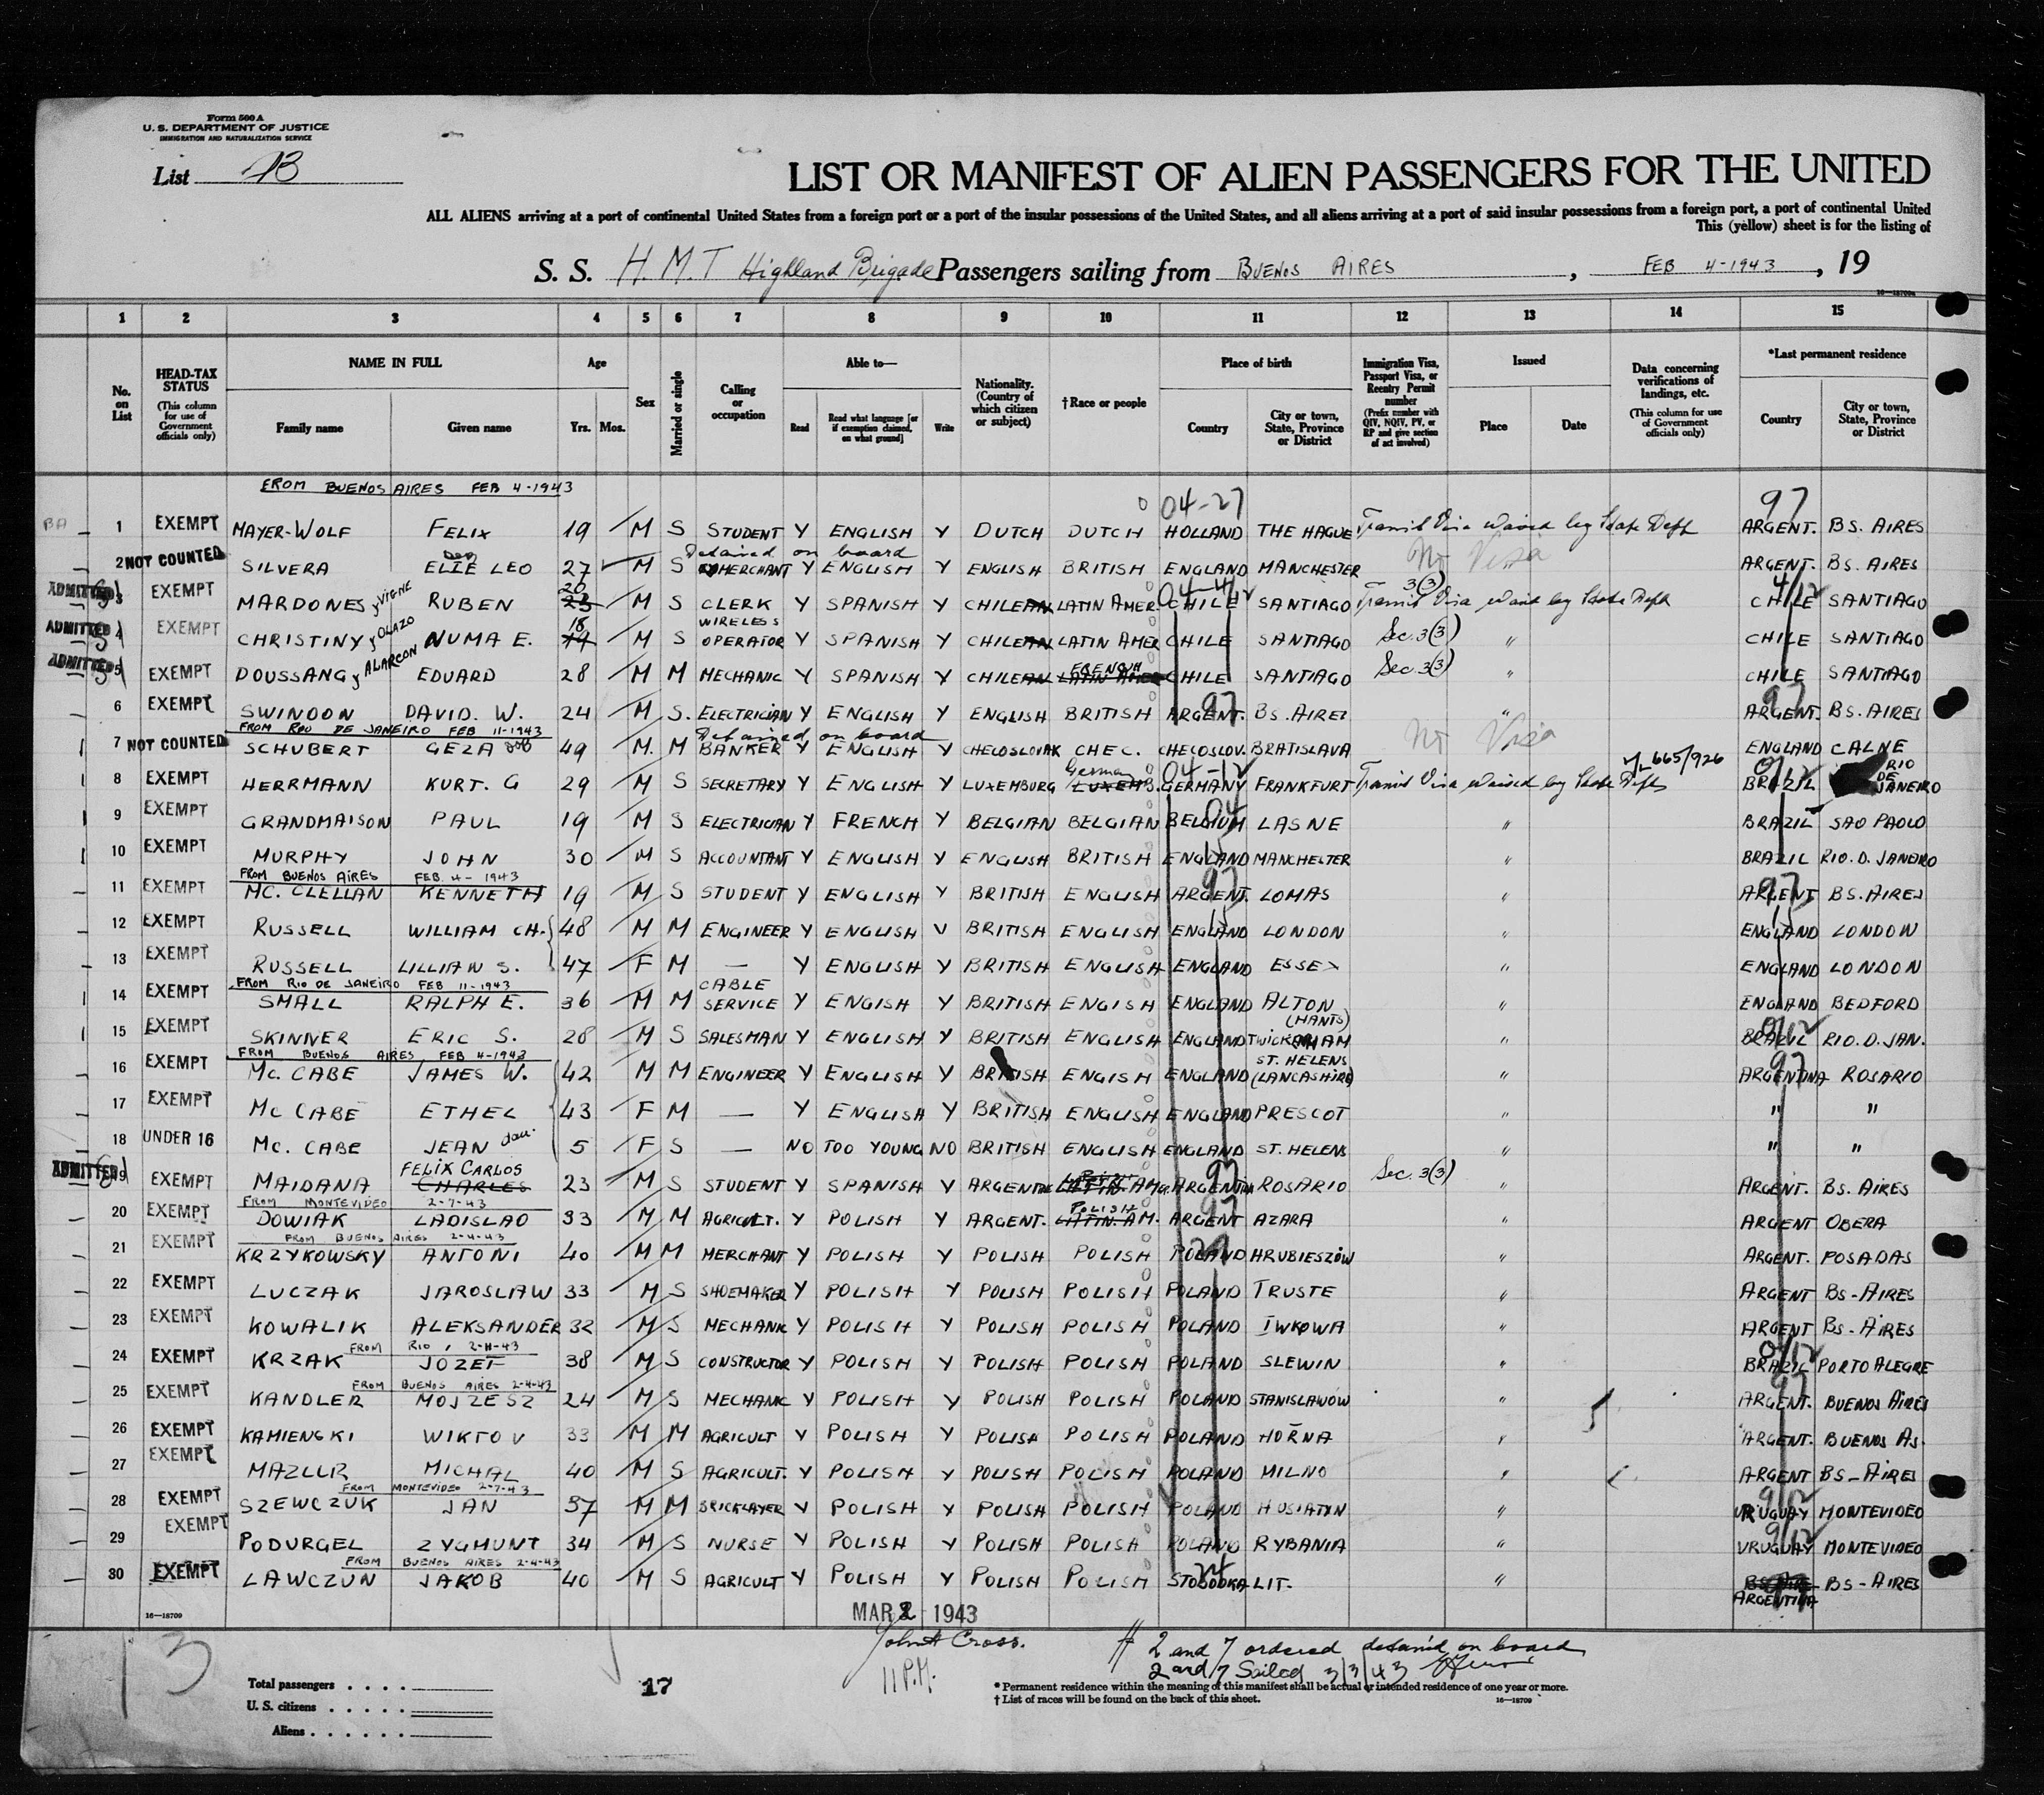 Form 500 A
U. S. DEPARTMENT OF JUSTICE
IMMIGRATION AND NATURALIZATION SERVICE
List 13
LIST OR MANIFEST OF ALIEN PASSENGERS FOR THE UNITED
ALL ALIENS arriving at a port of continental United States from a foreign port or a port of the insular possessions of the United States, and all aliens arriving at a port of said insular possessions from a foreign port, a port of continental United
This (yellow) sheet is for the listing of
S. S. H. M. T Highland Brigade Passengers sailing from BUENOS AIRES , FEB 4-1943 , 19
1 2 3 4 5 6 7 8 9 10 11 12 13 14 15
No. on List
HEAD-TAX STATUS (This column for use of Government officials only)
NAME IN FULL Family name Given name
Age Yrs. Mos.
Sex
Married or single
Calling or occupation
Able to— Read Read what language [or if exemption claimed, on what ground] Write
Nationality. (Country of which citizen or subject)
† Race or people
Place of birth Country City or town, State, Province or District
Immigration Visa, Passport Visa, or Reentry Permit number (Prefix number with QIV, NQIV, PV, or RP and give section of act involved)
Issued Place Date
Data concerning verifications of landings, etc. (This column for use of Government officials only)
*Last permanent residence Country City or town, State, Province or District
FROM BUENOS AIRES FEB 4-1943
04-27 97
BA 1 EXEMPT MAYER-WOLF FELIX 19 M S STUDENT Y ENGLISH Y DUTCH DUTCH HOLLAND THE HAGUE Transit Visa waived by State Dept ARGENT. BS. AIRES
Detained on board
2 NOT COUNTED SILVERA ELIE LEO 27 M S MERCHANT Y ENGLISH Y ENGLISH BRITISH ENGLAND MANCHESTER No Visa ARGENT. BS. AIRES
ADMITTED 3 EXEMPT MARDONES y VIGNE RUBEN 20 23 M S CLERK Y SPANISH Y CHILEAN LATIN AMER. CHILE SANTIAGO 3(3) Transit Visa waived by State Dept CHILE SANTIAGO
ADMITTED 4 EXEMPT CHRISTINY y OLAZO NUMA E. 18 19 M S WIRELESS OPERATOR Y SPANISH Y CHILEAN LATIN AMER CHILE SANTIAGO Sec. 3(3) " CHILE SANTIAGO
ADMITTED 5 EXEMPT DOUSSANG y ALARCON EDUARD 28 M M MECHANIC Y SPANISH Y CHILEAN FRENCH LATIN AMER CHILE SANTIAGO Sec 3(3) " CHILE SANTIAGO
6 EXEMPT SWINDON DAVID. W. 24 M S. ELECTRICIAN Y ENGLISH Y ENGLISH BRITISH ARGENT. BS. AIRES " ARGENT. BS. AIRES
FROM RIO DE JANEIRO FEB 11-1943 Detained on board
7 NOT COUNTED SCHUBERT GEZA 49 M. M BANKER Y ENGLISH Y CHECOSLOVAK CHEC. CHECOSLOV. BRATISLAVA No Visa ENGLAND CALNE
8 EXEMPT HERRMANN KURT. G 29 M S SECRETARY Y ENGLISH Y LUXEMBURG German LUXEMB. GERMANY FRANKFURT Transit Visa waived by State Dept 665/926 BRAZIL RIO DE JANEIRO
9 EXEMPT GRANDMAISON PAUL 19 M S ELECTRICIAN Y FRENCH Y BELGIAN BELGIAN BELGIUM LASNE " BRAZIL SAO PAOLO
10 EXEMPT MURPHY JOHN 30 M S ACCOUNTANT Y ENGLISH Y ENGLISH BRITISH ENGLAND MANCHESTER " BRAZIL RIO. D. JANEIRO
FROM BUENOS AIRES FEB. 4- 1943
11 EXEMPT MC. CLELLAN KENNETH 19 M S STUDENT Y ENGLISH Y BRITISH ENGLISH ARGENT. LOMAS " ARGENT BS. AIRES
12 EXEMPT RUSSELL WILLIAM CH. 48 M M ENGINEER Y ENGLISH Y BRITISH ENGLISH ENGLAND LONDON " ENGLAND LONDON
13 EXEMPT RUSSELL LILLIAN S. 47 F M — Y ENGLISH Y BRITISH ENGLISH ENGLAND ESSEX " ENGLAND LONDON
FROM RIO DE JANEIRO FEB 11-1943
14 EXEMPT SMALL RALPH E. 36 M M CABLE SERVICE Y ENGISH Y BRITISH ENGISH ENGLAND ALTON (HANTS) " ENGLAND BEDFORD
15 EXEMPT SKINNER ERIC S. 28 M S SALESMAN Y ENGLISH Y BRITISH ENGLISH ENGLAND TWICKENHAM " BRAZIL RIO. D. JAN.
FROM BUENOS AIRES FEB 4-1943
16 EXEMPT Mc. CABE JAMES W. 42 M M ENGINEER Y ENGLISH Y BRITISH ENGISH ENGLAND ST. HELENS (LANCASHIRE) " ARGENTINA ROSARIO
17 EXEMPT Mc CABE ETHEL 43 F M — Y ENGLISH Y BRITISH ENGLISH ENGLAND PRESCOT " " "
18 UNDER 16 Mc. CABE JEAN dau. 5 F S — NO TOO YOUNG NO BRITISH ENGLISH ENGLAND ST. HELENS " " "
ADMITTED 19 EXEMPT MAIDANA FELIX CARLOS CHARLES 23 M S STUDENT Y SPANISH Y ARGENTINE LATIN AM. ARGENTINA ROSARIO Sec. 3(3) " ARGENT. BS. AIRES
FROM MONTEVIDEO 2-7-43
20 EXEMPT DOWIAK LADISLAO 33 M M AGRICULT. Y POLISH Y ARGENT. POLISH LATIN. AM. ARGENT AZARA ARGENT OBERA
FROM BUENOS AIRES 2-4-43
21 EXEMPT KRZYKOWSKY ANTONI 40 M M MERCHANT Y POLISH Y POLISH POLISH POLAND HRUBIESZÓW " ARGENT. POSADAS
22 EXEMPT LUCZAK JAROSLAW 33 M S SHOEMAKER Y POLISH Y POLISH POLISH POLAND TRUSTE " ARGENT BS-AIRES
23 EXEMPT KOWALIK ALEKSANDER 32 M S MECHANK Y POLISH Y POLISH POLISH POLAND IWKOWA " ARGENT BS-AIRES
FROM RIO, 2-11-43
24 EXEMPT KRZAK JOZEF 38 M S CONSTRUCTOR Y POLISH Y POLISH POLISH POLAND SLEWIN " BRAZIL PORTO ALEGRE
FROM BUENOS AIRES 2-4-43
25 EXEMPT KANDLER MOJZESZ 24 M S MECHANK Y POLISH Y POLISH POLISH POLAND STANISLAWOW " ARGENT. BUENOS AIRES
26 EXEMPT KAMIENSKI WIKTOV 33 M M AGRICULT Y POLISH Y POLISH POLISH POLAND HORNA " ARGENT. BUENOS AS.
27 EXEMPT MAZUR MICHAL 40 M S AGRICULT. Y POLISH Y POLISH POLISH POLAND MILNO " ARGENT BS-AIRES
FROM MONTEVIDEO 2-7-43
28 EXEMPT SZEWCZUK JAN 37 M M BRICKLAYER Y POLISH Y POLISH POLISH POLAND HUSIATIN " URUGUAY MONTEVIDEO
29 EXEMPT PODURGEL ZYGMUNT 34 M S NURSE Y POLISH Y POLISH POLISH POLAND RYBANIA " URUGUAY MONTEVIDEO
FROM BUENOS AIRES 2-4-43
30 EXEMPT LAWCZUN JAKOB 40 M S AGRICULT Y POLISH Y POLISH POLISH STOBODKA LIT. " BS-AIRES
ARGENTINA
16—18709
MAR 2 1943
John H Cross.
11 P.M.
# 2 and 7 ordered detained on board
2 and 7 Sailed 3/3/43
13
Total passengers . . . .
U. S. citizens . . . . .
Aliens . . . . . .
17
* Permanent residence within the meaning of this manifest shall be actual or intended residence of one year or more.
† List of races will be found on the back of this sheet.
16—18709